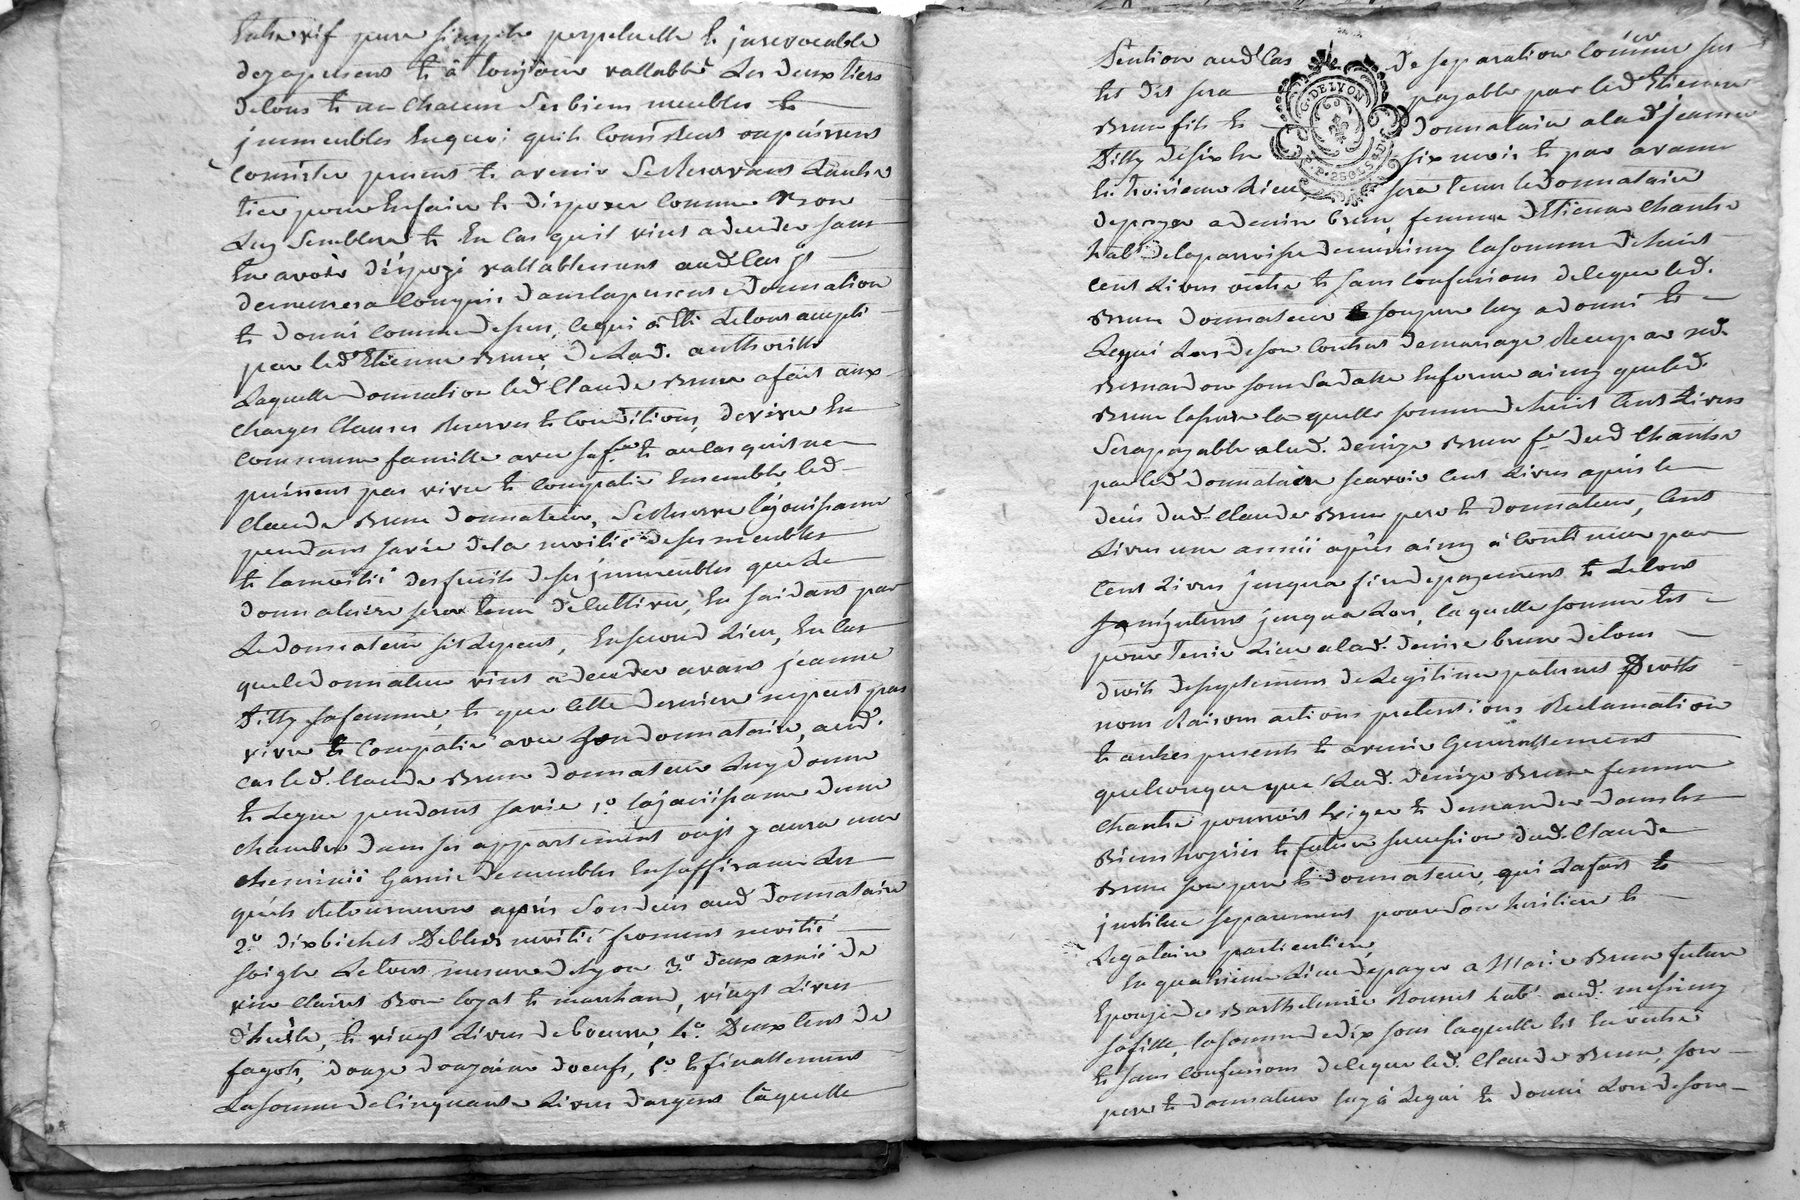 Entre vif pure simple perpetuelle et jrrevocable
dez apresent et â toujours vallable Les deux tiers
de tous et un chacun ses biens meubles et
jmmeubles en quoi quils consistent ou puissent
consister presens et avenir Se Reservant Lautre
tier pour en faire et disposer comme Bon
Luy Semblera et En Cas quil vint a deceder sans
En avoir dispozé vallablement aud. Cas jl
demeurera compris dans la presente donnation
et donné comme dessus, ce qui â Eté Letout accepté
par led. Etienne Brun, de Lad. authorité
Laquelle donnation led. Claude Brun a fait aux
charges clauses Reserves et Conditions de vivre En
commune famille avec sa fe. et au cas quils ne
puissent pas vivre et compatir Ensemble, led.
Claude Brun donnateur, Se Reserve la jouissance
pendant sa vie de la moitié de ses meubles
et la moitié des fruits de ses jmmeubles que Le
donnataire sera tenu de cultiver, En saidant par
Le donnateur sil Lepeut, En second Lieu, En Cas
que le donnateur vint a deceder avant jeanne
Ditty sa femme, et que Cette derniere ne peut pas
vivre et Compatir avec Son donnataire, aud.
cas led. Claude Brun donnateur Luy donne
et Legue pendant sa vie 1o. la jouissance dune
chambre dans ses appartements ou jl y aura une
cheminée Garnie de meubles En suffisance Les
quels Retourneront après Son deces aud. donnataire
2o. dix bichets de bled moitié froment moitié
soigle Letout mesure de Lyon 3o. deux anée de
vin clairet Bon loyal et marchand, vingt Livres
d'huile, et vingt Livres de beurre, 4o. deux Cent de
fagots, douze douzaine doeufs, 5o. et finallement
La somme de Cinquante Livres dargent laquelle
G. DE LYON
P. P. 2 SOLS 4 D.
Pention aud. Cas de separation comme sus
Est dit sera payable par led. Etienne
Brun fils et donnataire a lad. jeanne
Ditty de six En six mois et par avance
En troisieme Lieu sera tenu le donnataire
de payer a denise brun, femme d'Etienne Chantre
hab. de la parroisse de messimy la somme de huit
cent Livres outre et sans confusions de ce que led.
Brun donnateur Son pere luy a donné et
Legué Lors de son Contrat de mariage Recu par Me.
Bernardon sous Sa datte En forme ainsy que led.
Brun lassure laquelle somme de huit Cent Livres
Sera payable a lad. denize Brun fe. dud. Chantre
par led. donnataire scavoir Cent Livres après le
deces dud. Claude Brun pere et donnateur, Cent
Livres une année après ainsy â continuer par
Cent Livres jusqua fin de payement et Letout
Sans jnterets jusqua Lors, laquelle somme Est
pour tenir Lieu a lad. denise brun de tous
droits de supplement de Legitime paternel Droits
noms Raisons actions pretentions Reclamation
et autres presents et avenir Generallement
quelconque que Lad. denize Brun femme
Chantre pourroit Exiger et demander dans les
Biens hoyries et future succession dud. Claude
Brun son pere et donnateur, qui La fait et
jnstitue separement pour son heritiere et
Legataire particuliere
En quatrieme Lieu de payer a Marie Brun future
Epouze de Barthelemie Rousset hab. aud. messimy
sa fille, la somme de dix sous laquelle Est En outre
et sans confusions de ce que led. Claude Brun, son
pere et donnateur luy â Legué et donné Lors de son